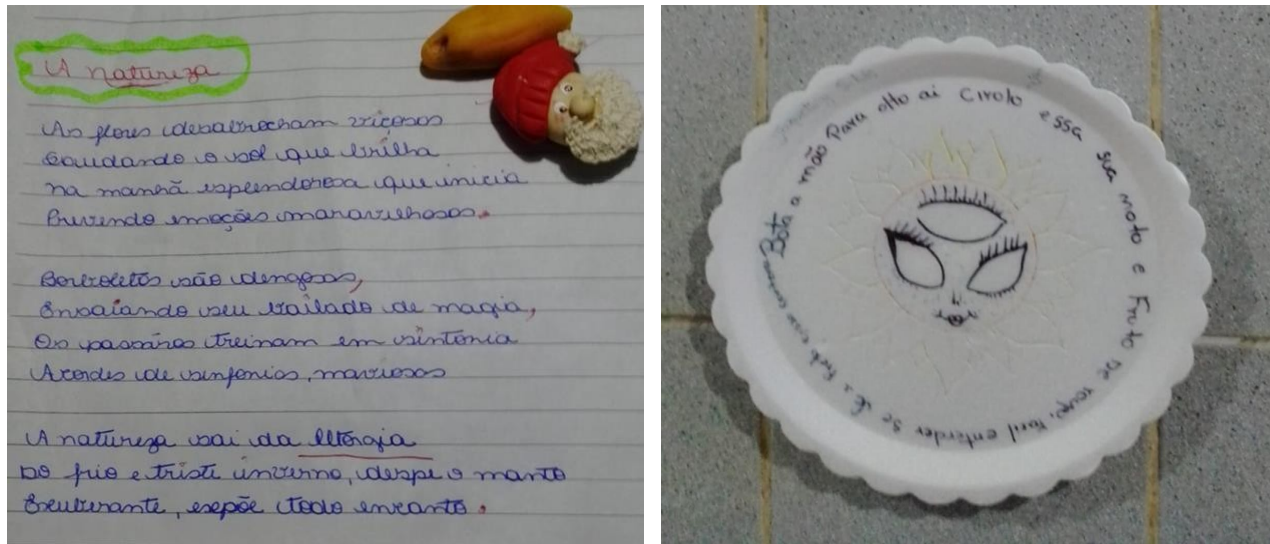 A natureza
As flores desabrocham viçosas
Saudando o sol que brilha
na manhã esplendorosa que inicia
Prevendo emoções maravilhosas.
Borboletas são dengosas,
Ensaiando seu bailado de magia,
Os passáros treinam em sintonia
Acordes de sinfonias, maviosas
A natureza sai da letargia
Do frio e triste inverno, despe o manto
Exuberante, expõe todo encanto.
Bota a mão Para alto ai Cirolo essa sua moto e Fruto De roupo, facil entender se